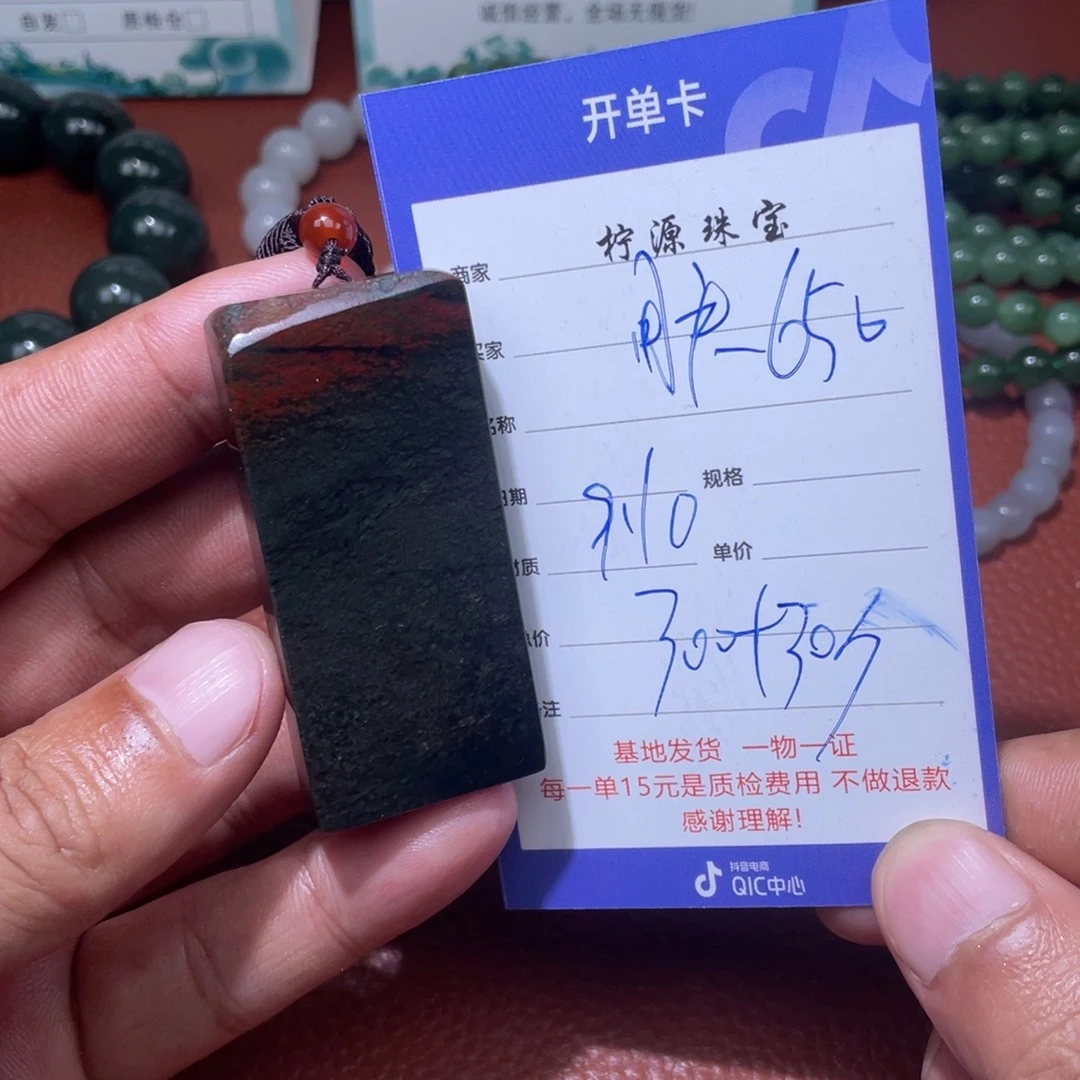 诚信经营，全场无假货!
开单卡
柠源珠宝
商家
656
家
名称
期
9/10
规格
质
单价
价
300+305
注
基地发货 一物一证
每一单15元是质检费用 不做退款
感谢理解!
抖音电商
QIC中心